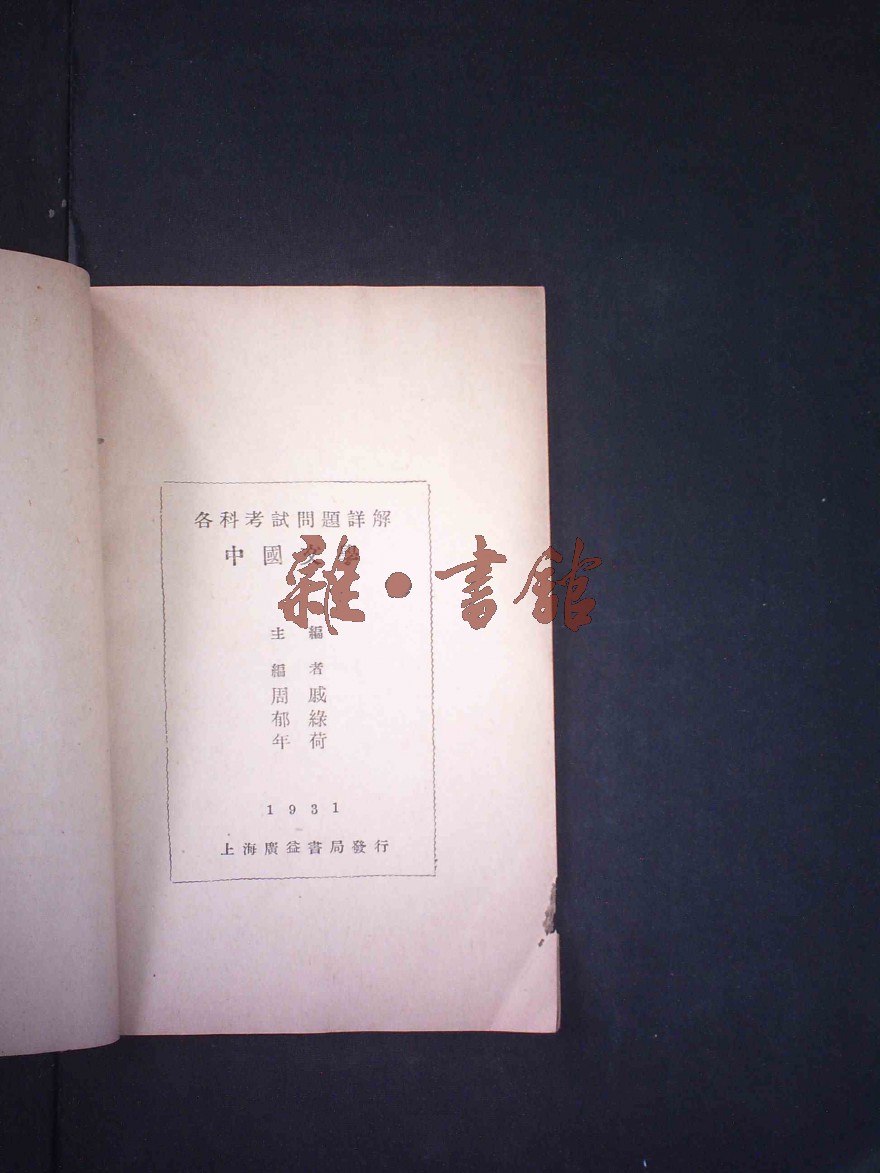 各科考試問題詳解
中國文學
雜·書館
主編
編者
周 戚
郁 綠
年 荷
1931
上海廣益書局發行